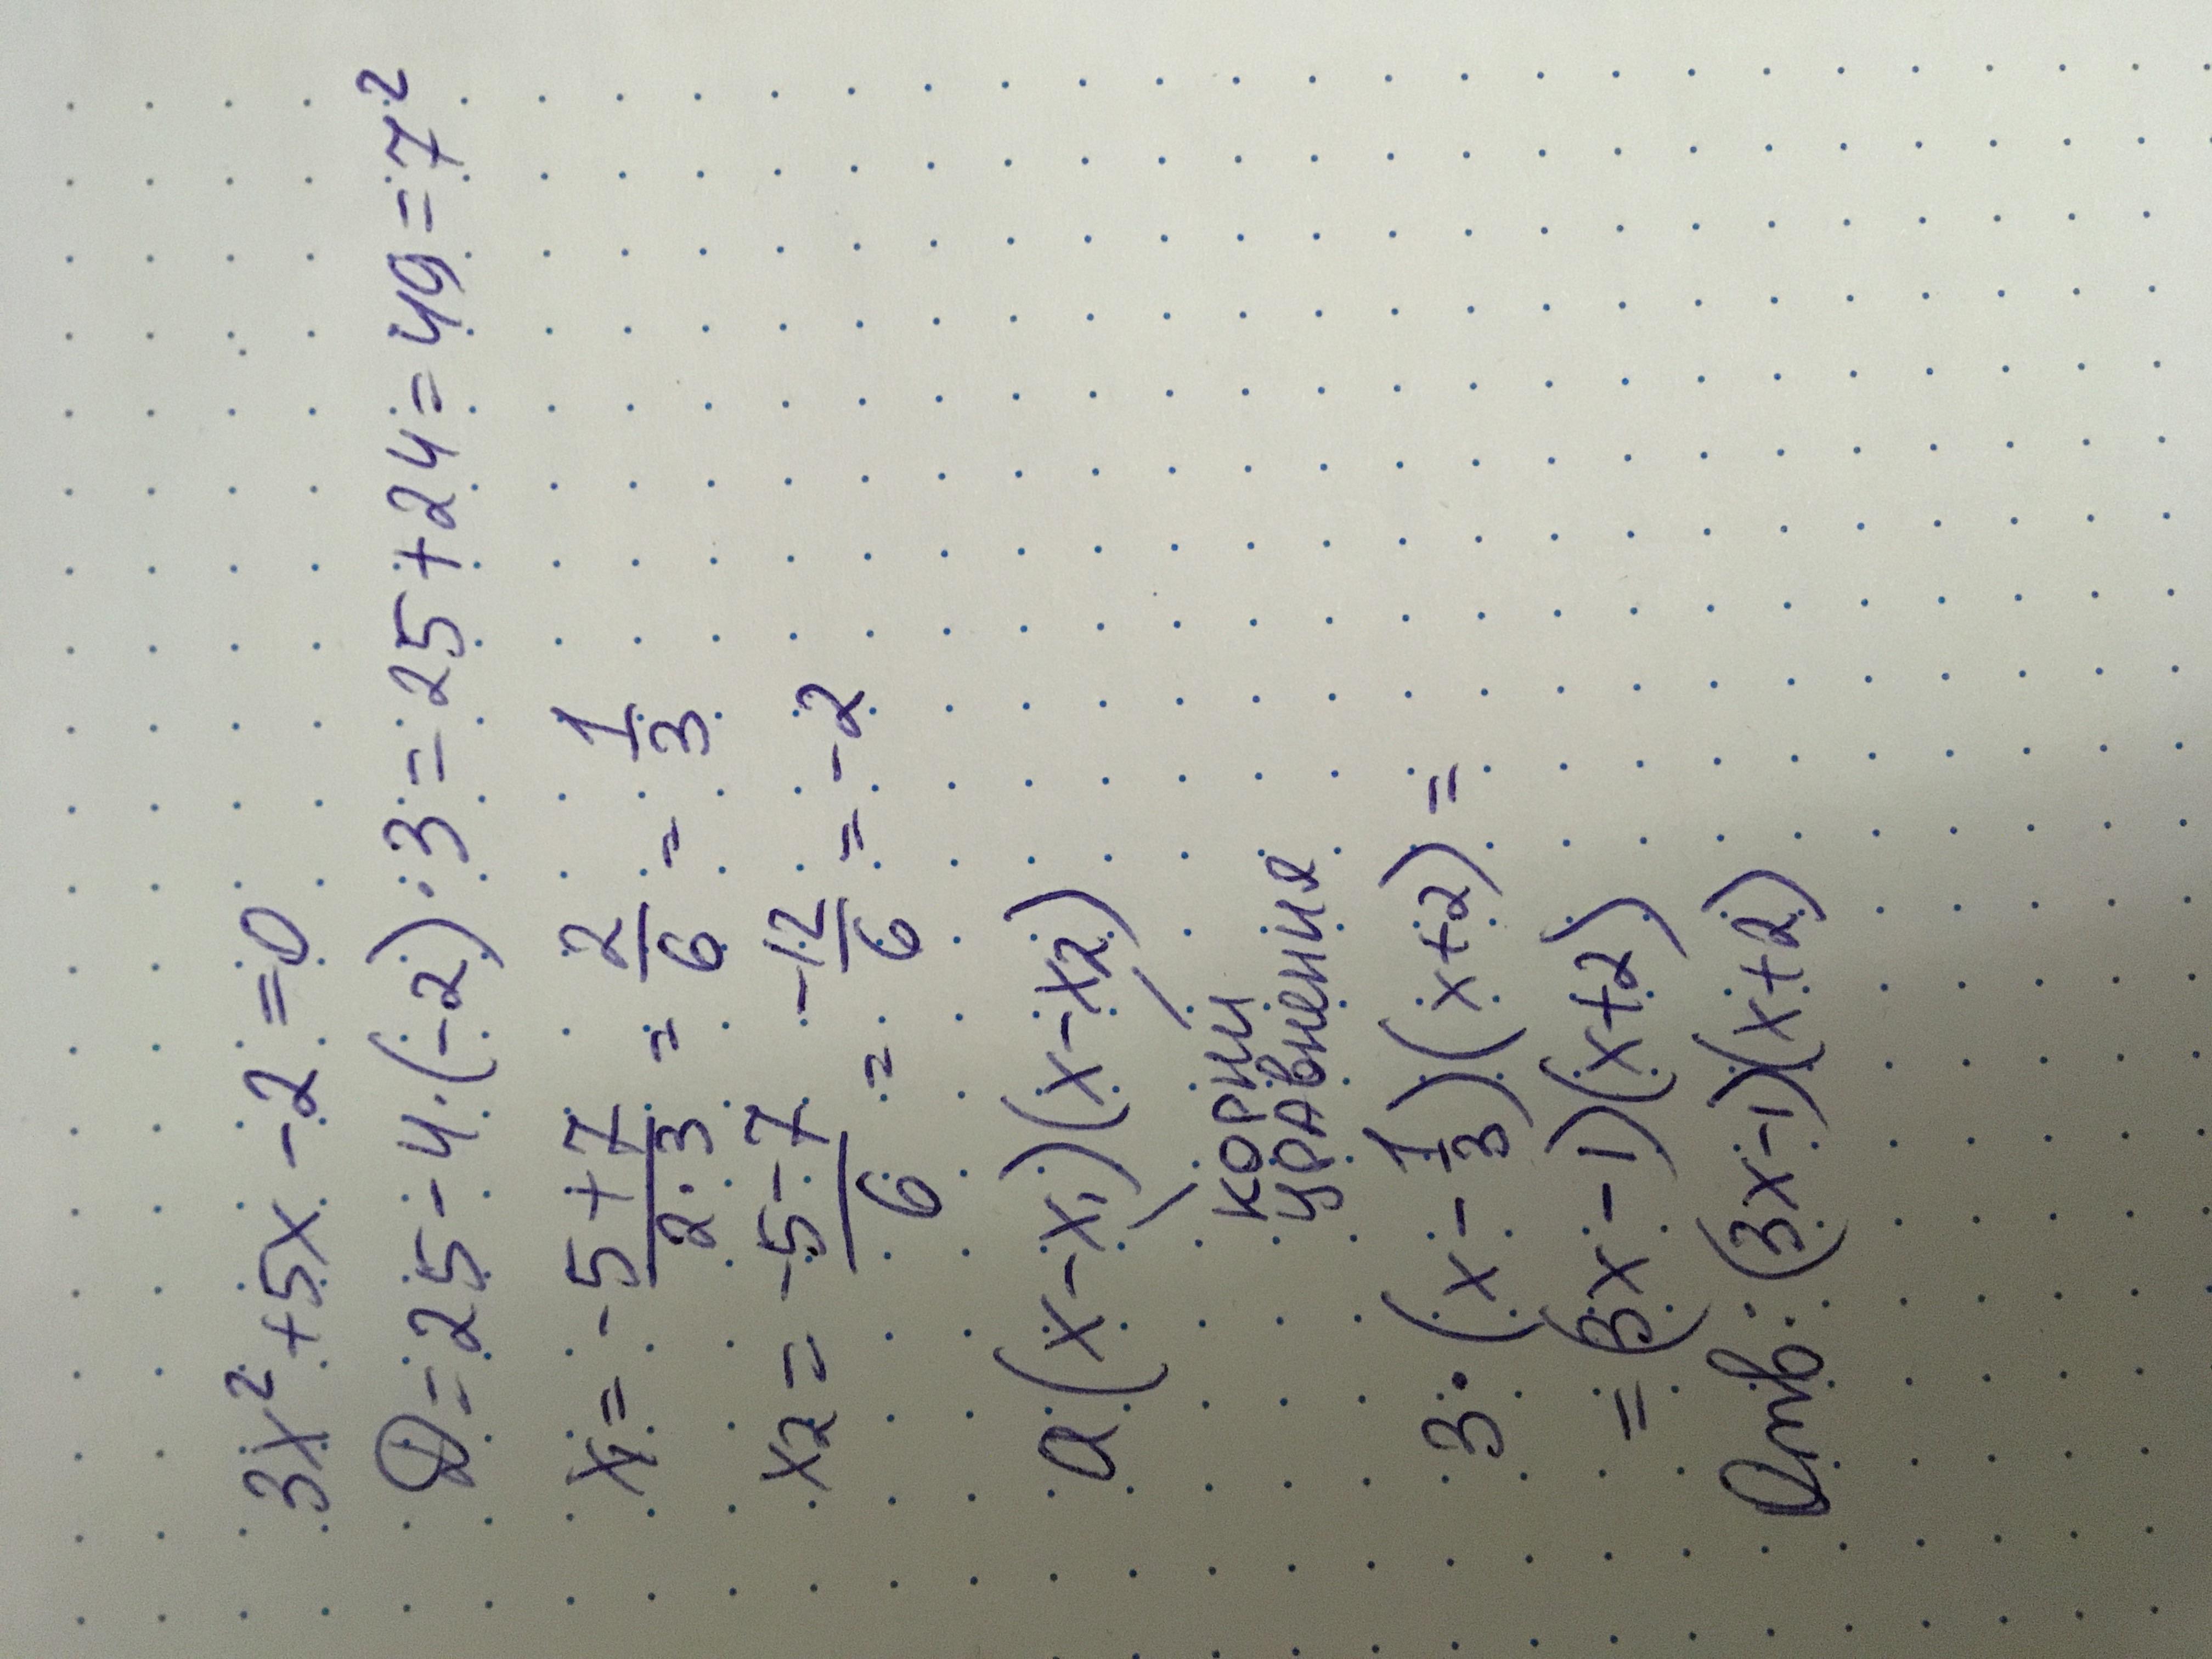 3x² + 5x - 2 = 0
D = 25 - 4·(-2)·3 = 25 + 24 = 49 = 7²
x₁ = -5+7/2·3 = 2/6 = 1/3
x₂ = -5-7/6 = -12/6 = -2
a(x-x₁)(x-x₂)
корни
уравнения
3·(x - 1/3)(x+2) =
= (3x-1)(x+2)
Отв: (3x-1)(x+2)